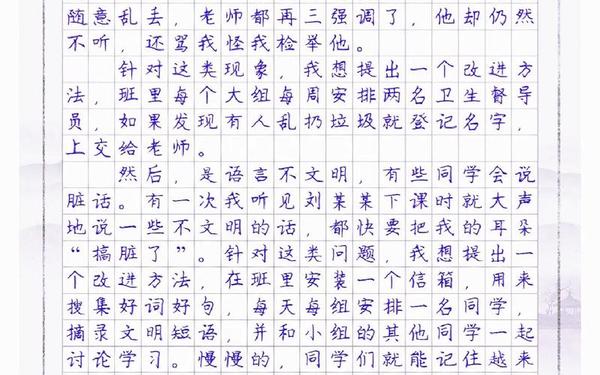 随意乱丢，老师都再三强调了，他却仍然
不听，还骂我怪我检举他。
针对这类现象，我想提出一个改进方
法，班里每个大组每周安排两名卫生督导
员，如果发现有人乱扔垃圾就登记名字，
上交给老师。
然后，是语言不文明，有些同学会说
脏话。有一次我听见刘某某下课时就大声
地说一些不文明的话，都快要把我的耳朵
“搞脏了”。针对这类问题，我想提出一
个改进方法，在班里安装一个信箱，用来
搜集好词好句，每天每组安排一名同学，
摘录文明短语，并和小组的其他同学一起
讨论学习。慢慢的，同学们就能记住越来